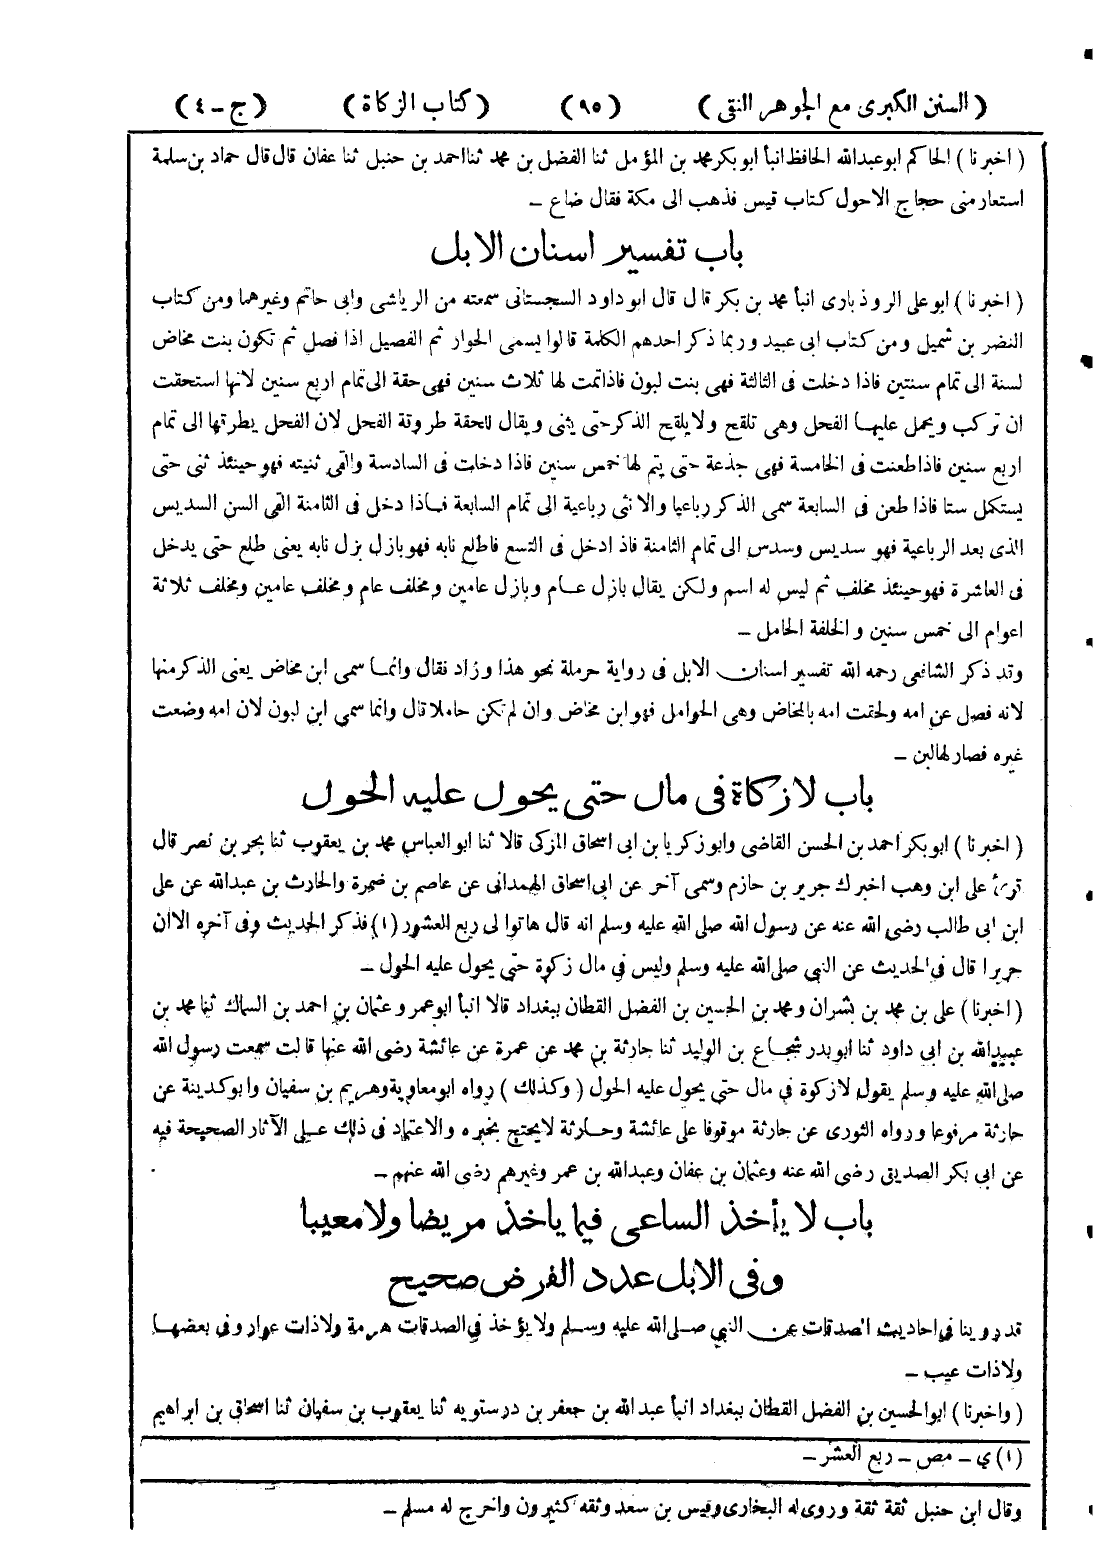 (السنن الكبرى مع الجوهر النقى) (٩٥) (كتاب الزكاة) (ج - ٤)
(اخبرنا) الحاكم ابوعبدالله الحافظ انبأ ابوبكر محمد بن المؤمل ثنا الفضل بن محمد ثنا احمد بن حنبل ثنا عفان قال قال حماد بن سلمة
استعار منى حجاج الاحول كتاب قيس فذهب الى مكة فقال ضاع -
باب تفسير اسنان الابل
(اخبرنا) ابو على الروذبارى انبأ محمد بن بكر قال قال ابو داود السجستانى سمعته من الرياشى وابى حاتم وغيرهما ومن كتاب
النضر بن شميل ومن كتاب ابى عبيد وربما ذكر احدهم الكلمة قالوا يسمى الحوار ثم الفصيل اذا فصل ثم تكون بنت مخاض
لسنة الى تمام سنتين فاذا دخلت فى الثالثة فهى بنت لبون فاذا تمت لها ثلاث سنين فهى حقة الى تمام اربع سنين لانها استحقت
ان تركب ويحمل عليها الفحل وهى تلقح ولا يلقح الذكر حتى يثنى ويقال للحقة طروقة الفحل لان الفحل يطرقها الى تمام
اربع سنين فاذا طعنت فى الخامسة فهى جذعة حتى يتم لها خمس سنين فاذا دخلت فى السادسة والقى ثنيته فهو حينئذ ثنى حتى
يستكمل ستا فاذا طعن فى السابعة سمى الذكر رباعيا والانثى رباعية الى تمام السابعة فاذا دخل فى الثامنة القى السن السديس
الذى بعد الرباعية فهو سديس وسدس الى تمام الثامنة فاذ ادخل فى التسع فاطلع نابه فهو بازل بزل نابه يعنى طلع حتى يدخل
فى العاشرة فهو حينئذ مخلف ثم ليس له اسم ولكن يقال بازل عام وبازل عامين ومخلف عام ومخلف عامين ومخلف ثلاثة
اعوام الى خمس سنين والخلفة الحامل -
وقد ذكر الشافعى رحمه الله تفسير اسنان الابل فى رواية حرملة نحو هذا وزاد فقال وانما سمى ابن مخاض يعنى الذكر منها
لانه فصل عن امه ولحقت امه بالمخاض وهى الحوامل فهو ابن مخاض وان لم تكن حاملا قال وانما سمى ابن لبون لان امه وضعت
غيره فصار لها لبن -
باب لا زكاة فى مال حتى يحول عليه الحول
(اخبرنا) ابوبكر احمد بن الحسن القاضى وابو زكريا بن ابى اسحاق المزكى قالا ثنا ابو العباس محمد بن يعقوب ثنا بحر بن نصر قال
قرئ على ابن وهب اخبرك جرير بن حازم وسمى آخر عن ابى اسحاق الهمدانى عن عاصم بن ضمرة والحارث بن عبدالله عن على
ابن ابى طالب رضى الله عنه عن رسول الله صلى الله عليه وسلم انه قال هاتوا لى ربع العشور (١) فذكر الحديث وفى آخره الا ان
جريرا قال فى الحديث عن النبي صلى الله عليه وسلم وليس في مال زكوة حتى يحول عليه الحول -
(اخبرنا) على بن محمد بن بشران ومحمد بن الحسين بن الفضل القطان ببغداد قالا انبأ ابو عمرو عثمان بن احمد بن السماك ثنا محمد بن
عبيدالله بن ابى داود ثنا ابو بدر شجاع بن الوليد ثنا حارثة بن محمد عن عمرة عن عائشة رضى الله عنها قالت سمعت رسول الله
صلى الله عليه وسلم يقول لا زكوة في مال حتى يحول عليه الحول (وكذلك) رواه ابو معاوية وهريم بن سفيان وابو كدينة عن
حارثة مرفوعا ورواه الثورى عن حارثة موقوفا على عائشة وحارثة لا يحتج بخبره والاعتماد فى ذلك على الآثار الصحيحة فيه
عن ابى بكر الصديق رضى الله عنه وعثمان بن عفان وعبدالله بن عمر وغيرهم رضى الله عنهم -
باب لا يأخذ الساعى فيما ياخذ مريضا ولا معيبا
وفى الابل عدد الفرض صحيح
قد روينا فى احاديث الصدقات عن النبي صلى الله عليه وسلم ولا يؤخذ فى الصدقات هرمة ولا ذات عوار وفى بعضها
ولا ذات عيب -
(واخبرنا) ابوالحسين بن الفضل القطان ببغداد انبأ عبد الله بن جعفر بن درستويه ثنا يعقوب بن سفيان ثنا اسحاق بن ابراهيم
(١) ي - مص - ربع العشر -
وقال ابن حنبل ثقة ثقة وروى له البخارى وقيس بن سعد وثقه كثيرون واخرج له مسلم -